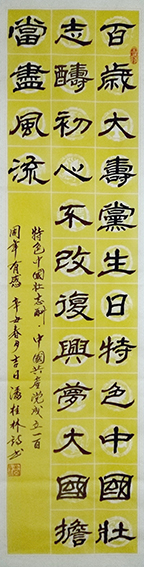 百歲大壽黨生日特色中國壯
志醻初心不改復興夢大國擔
當盡風流
特色中國壯志酬·中國共產党成立一百
周年有感 辛丑春月吉日潘桂林詩書